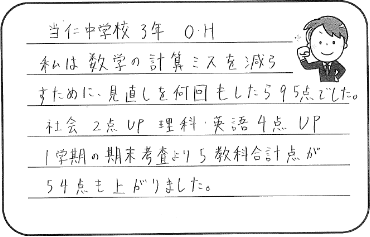 当仁中学校 3年 O・H
私は数学の計算ミスを減ら
すために、見直しを何回もしたら95点でした。
社会 2点UP 理科・英語 4点 UP
1学期の期末考査より5教科合計点が
54点も上がりました。